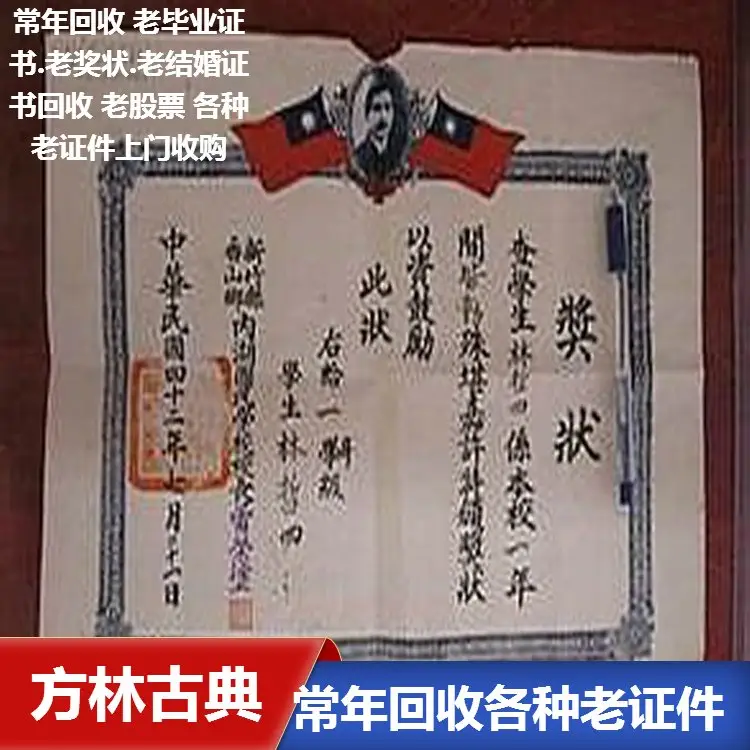 常年回收 老毕业证
书.老奖状.老结婚证
书回收 老股票 各种
老证件上门收购
獎狀
查學生林哲四係本校一年
間皆勤殊堪嘉許特頒獎狀
以資鼓勵
此狀
右給一年學級
學生林哲四
新竹縣
香山鄉
內湖國民學校校長
中華民國四十二年七月十一日
方林古典
常年回收各种老证件